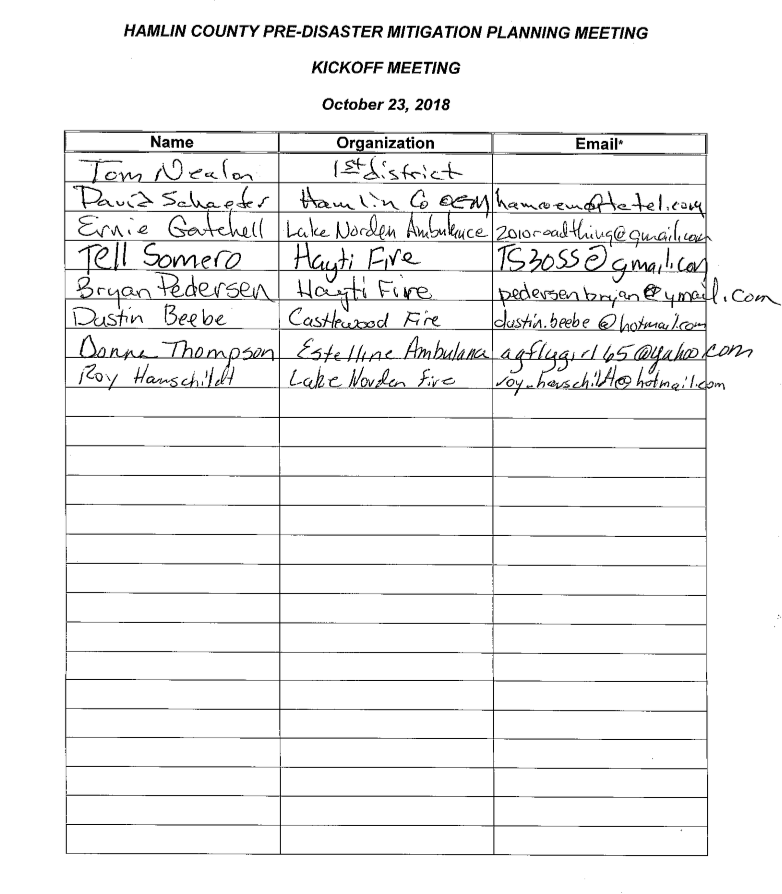 HAMLIN COUNTY PRE-DISASTER MITIGATION PLANNING MEETING
KICKOFF MEETING
October 23, 2018
Name Organization Email*
Tom Nealon 1st district
David Schaefer Hamlin Co OEM
Ernie Gatchell Lake Norden Ambulance 2010roadthing@gmail.com
Tell Somero Hayti Fire TS3055@gmail.com
Bryan Pedersen Hayti Fire pedersenbryan@ymail.com
Dustin Beebe Castlewood Fire dustin.beebe@hotmail.com
Donna Thompson Estelline Ambulance agflygirl65@yahoo.com
Roy Hamschildt Lake Norden Fire